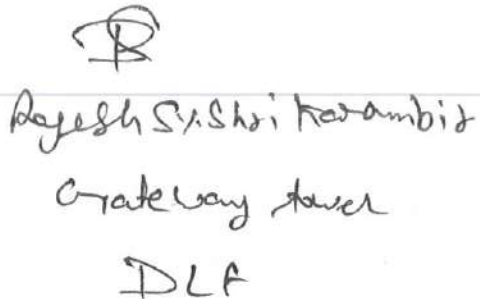 Rajesh S/o Shri Karambir
Gateway tower
DLF